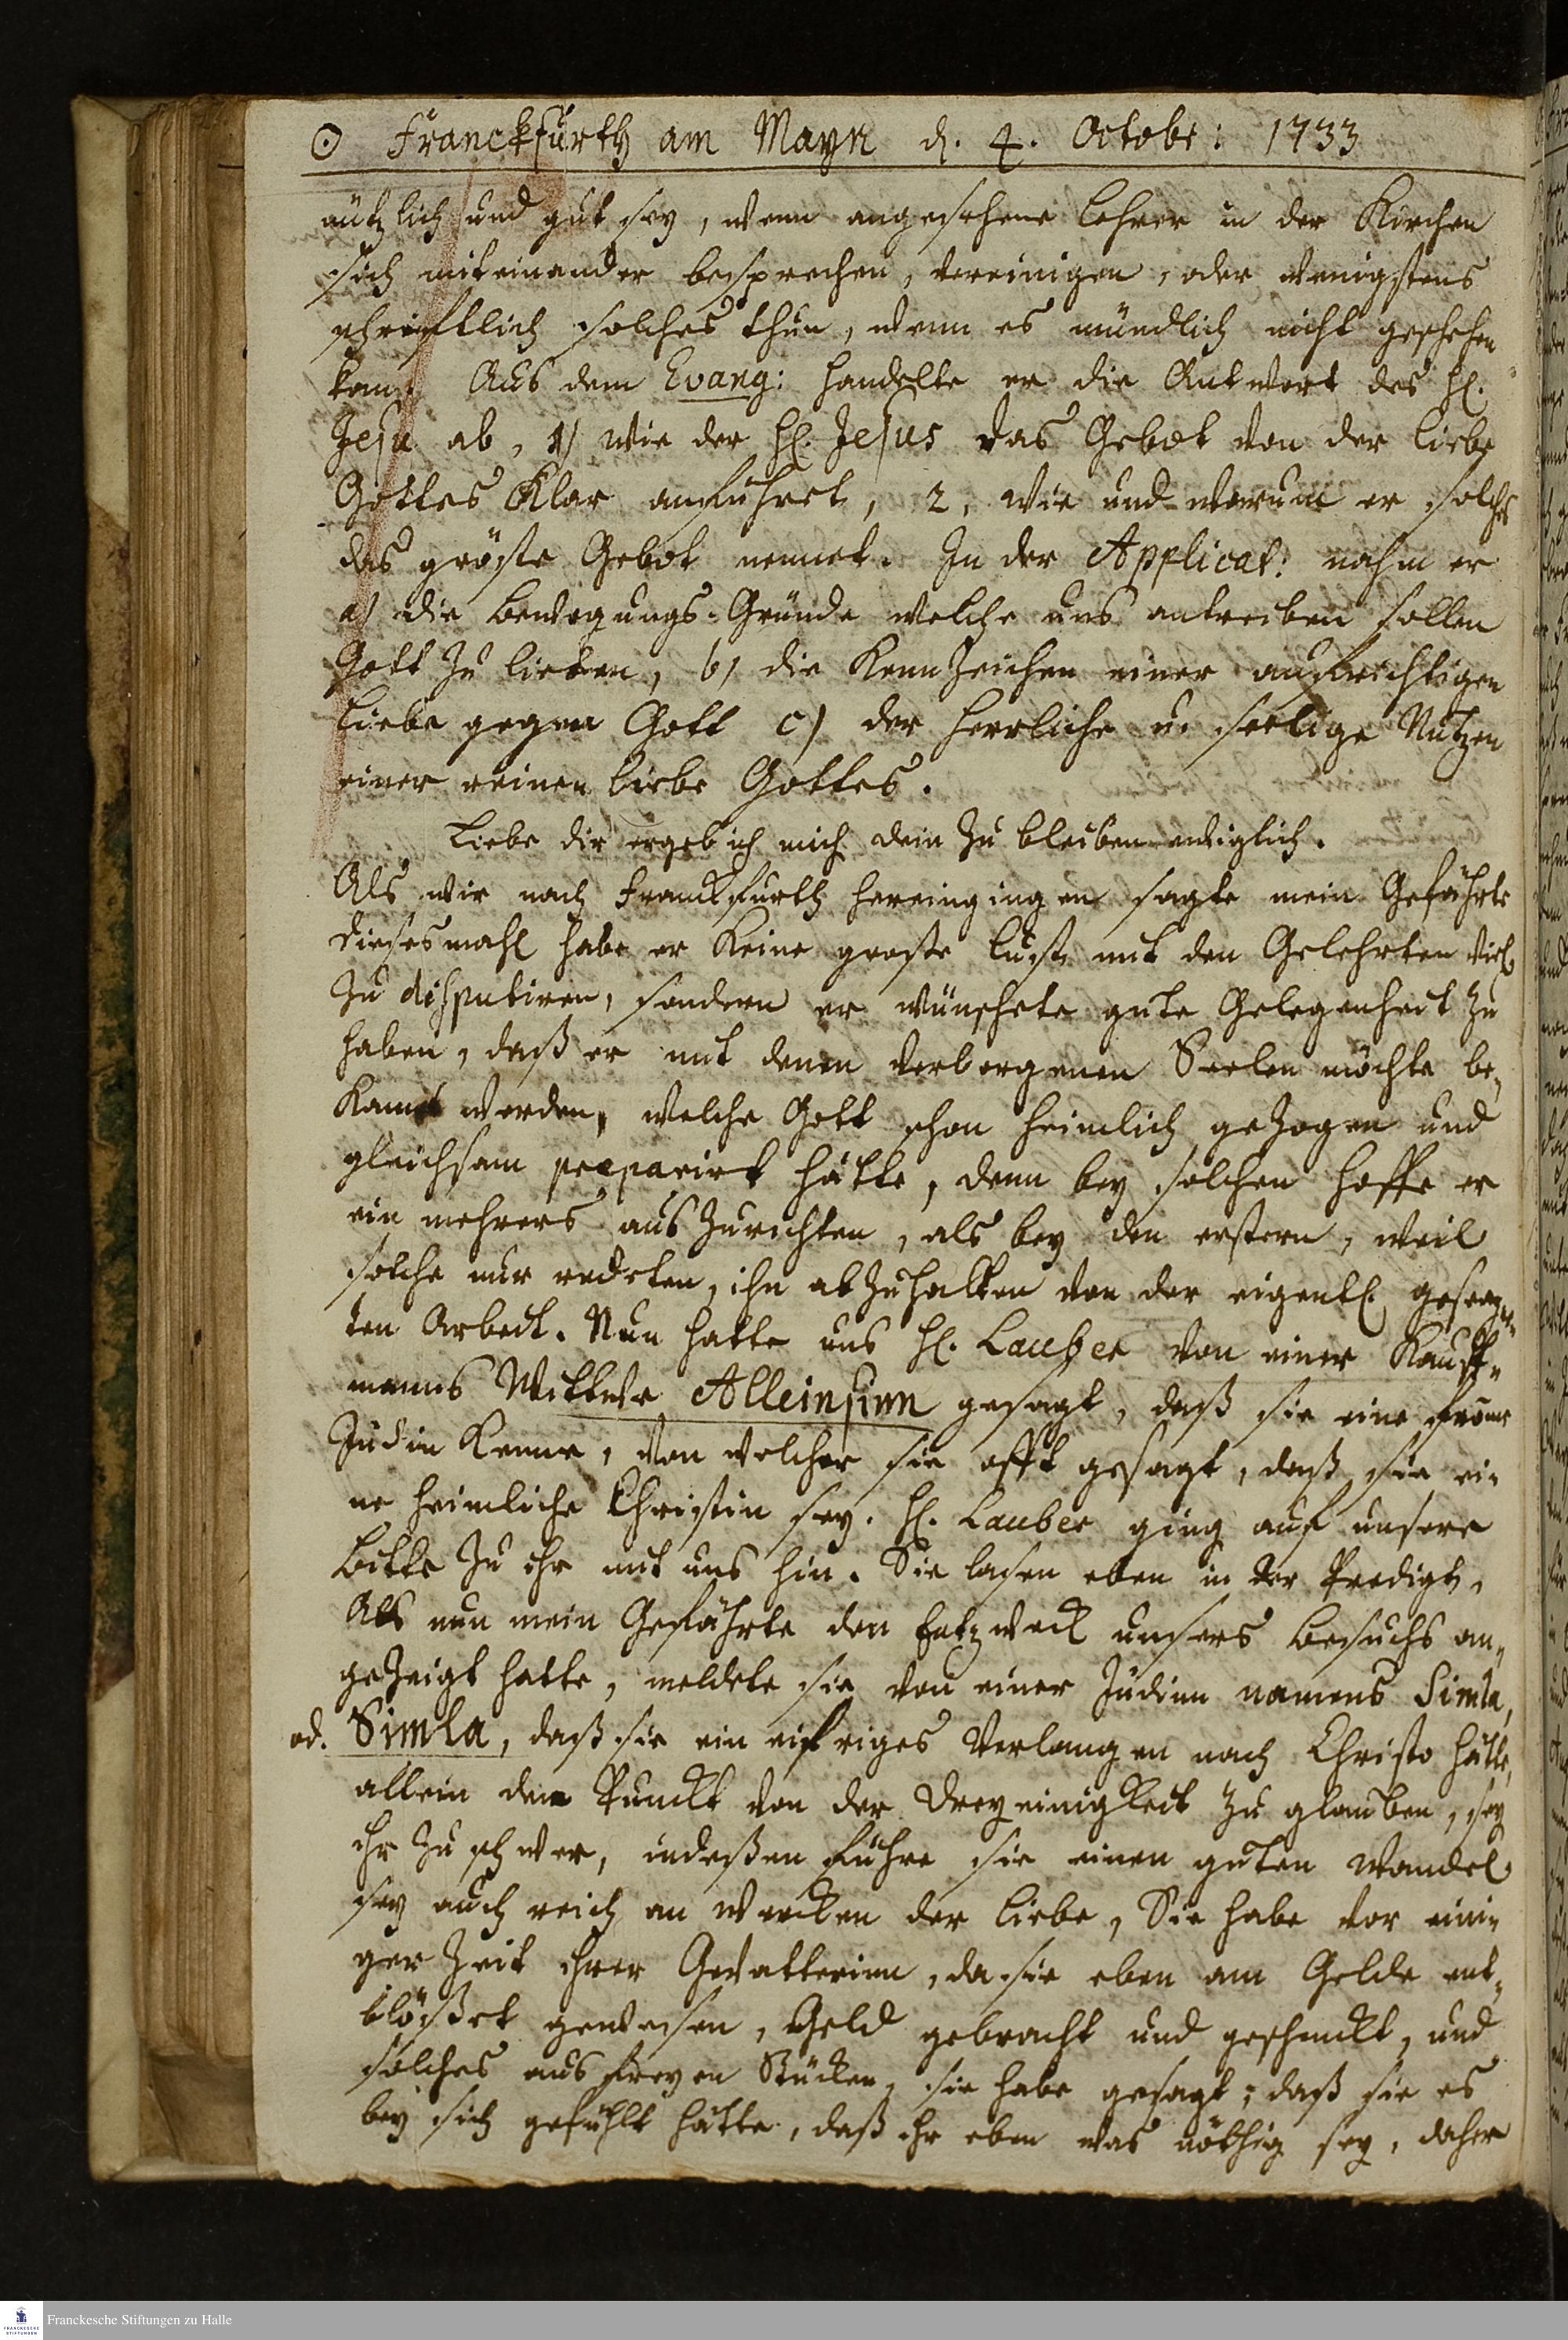 ☉ Franckfurth am Mayn d. 4. Octobr: 1733
nützlich und gut sey, wenn angesehene Lehrer in der Kirchen
sich miteinander besprechen, vereinigen, oder wenigstens
schrifftlich solches thun, wenn es mündlich nicht geschehen
kan. Aus dem Evang: handelte er die Antwort des H.
Jesu ab, 1) wie der H. Jesus das Gebot von der Liebe
Gottes klar anführet, 2, wie und warum er solches
das gröste Gebot nennet. In der Applicat: nahm er
a) die Bewegungs-Gründe welche uns antreiben sollen
Gott zu lieben, b) die Kennzeichen einer aufrichtigen
Liebe gegen Gott c) der herrliche u. seelige Nutzen
einer reinen Liebe Gottes.
Liebe dir ergeb ich mich dein zu bleiben ewiglich.
Als wir nach Franckfurth hereingingen sagte mein Gefährte
diesesmahl habe er keine grosse Lust mit den Gelehrten viel
zu disputiren, sondern er wünschete gute Gelegenheit zu
haben, daß er mit denen verborgenen Seelen möchte be-
kant werden, welche Gott schon heimlich gezogen und
gleichsam præparirt hätte, denn bey solchen hoffe er
ein mehrers auszurichten, als bey den erstern, weil
solche nur redeten, ihn abzuhalten von der eigentl. gesegne-
ten Arbeit. Nun hatte uns H. Lauber von einer Kauff-
manns Wittwe Alleinsinn gesagt, daß sie eine from̄e
Jüdin kenne, von welcher sie offt gesagt, daß sie ei-
ne heimliche Christin sey. H. Lauber ging auf unsere
Bitte zu ihr mit uns hin. Sie lasen eben in der Predigt.
Als nun mein Gefährte den Entzweck unsers Besuchs an-
gezeigt hatte, meldete sie von einer Jüdinn namens Simla,
od. Simla, daß sie ein eifriges Verlangen nach Christo hätte,
allein den Punckt von der Dreyeinigkeit zu glauben, sey
ihr zu schwer, indeßen führe sie einen guten Wandel
sey auch reich an Wercken der Liebe, Sie habe vor eini-
ger Zeit ihrer Gevatterinn, da sie eben am Gelde ent-
blößet gewesen, Geld gebracht und geschenckt, und
solches aus freyen Stücken, sie habe gesagt, daß sie es
bey sich gefühlt hätte, daß ihr eben was nöthig sey, daher
Franckesche Stiftungen zu Halle